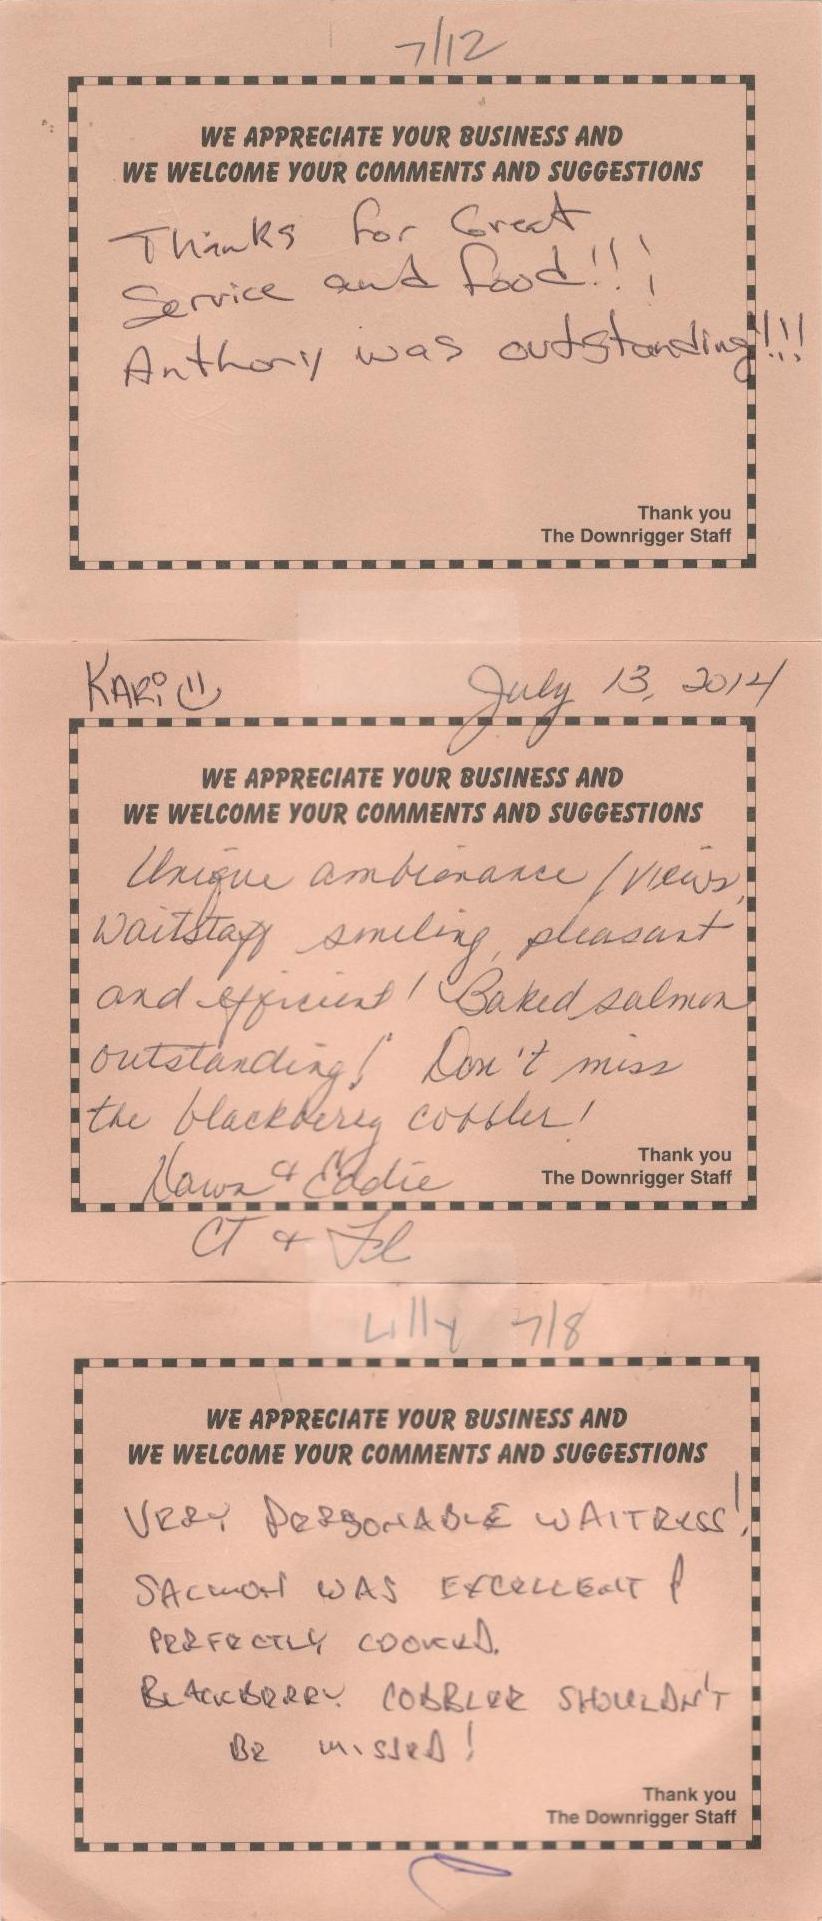 7/12
WE APPRECIATE YOUR BUSINESS AND
WE WELCOME YOUR COMMENTS AND SUGGESTIONS
Thanks for Great
Service and food!!!
Anthony was outstanding!!!
Thank you
The Downrigger Staff
KARi July 13, 2014
WE APPRECIATE YOUR BUSINESS AND
WE WELCOME YOUR COMMENTS AND SUGGESTIONS
Unique ambienance / views,
Waitstaff smiling, pleasant
and efficient! Baked salmon
outstanding! Don't miss
the blackberry cobbler!
Thank you
Dawn & Eddie The Downrigger Staff
CT & Fl
Lilly 7/8
WE APPRECIATE YOUR BUSINESS AND
WE WELCOME YOUR COMMENTS AND SUGGESTIONS
VERY PERSONABLE WAITRESS!
SALMON WAS EXCELLENT &
PERFECTLY COOKED.
BLACKBERRY COBBLER SHOULDN'T
BE MISSED!
Thank you
The Downrigger Staff